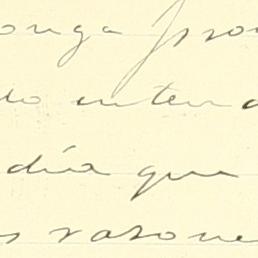 onga pron
do enten
día que
s razone